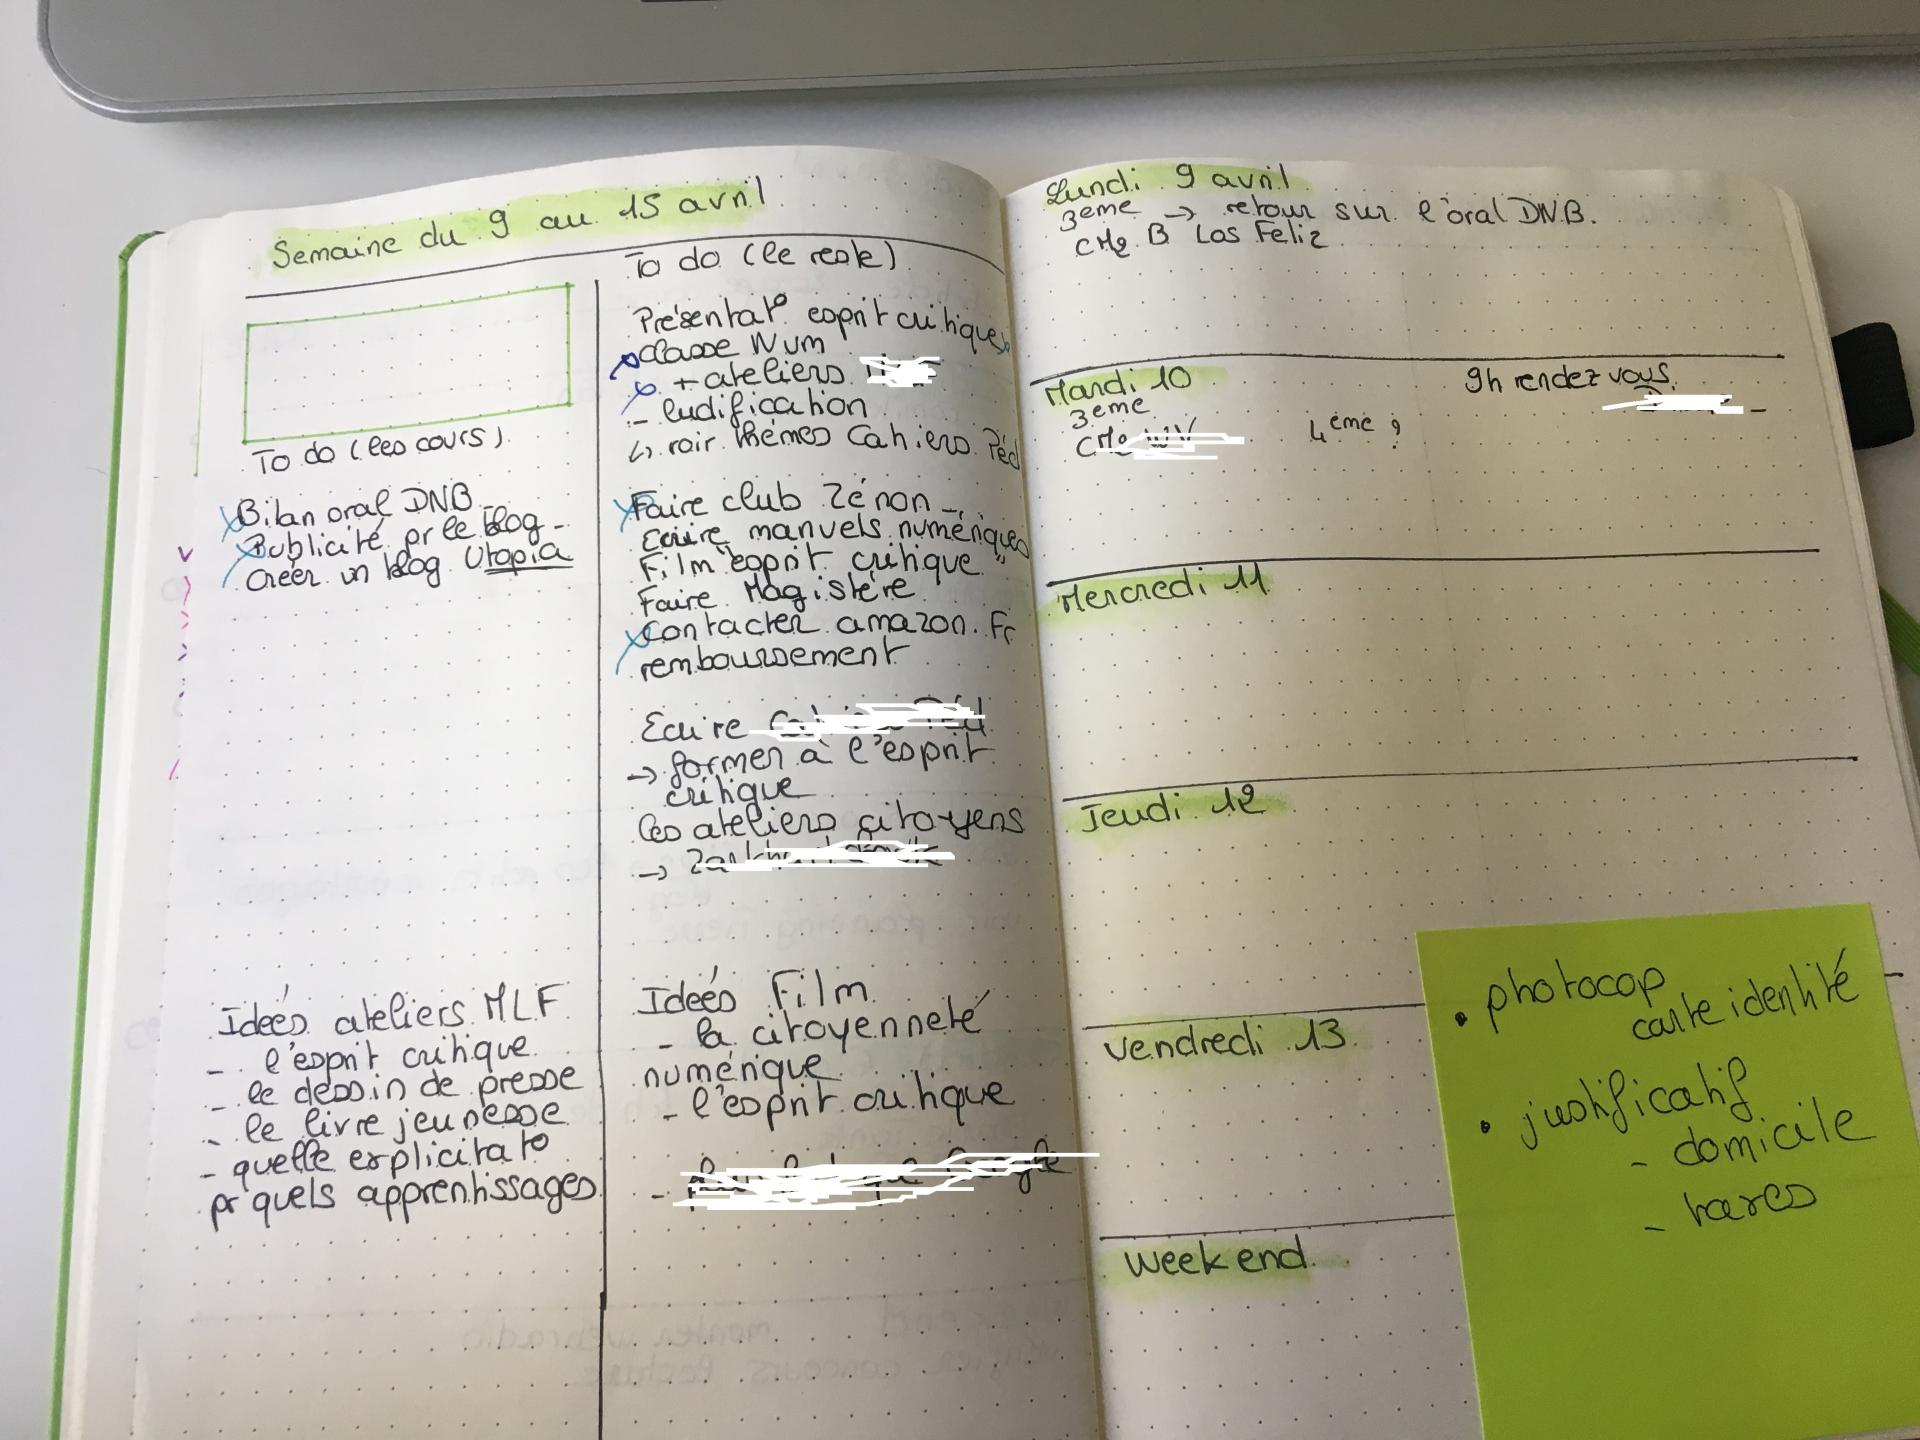 Semaine du 9 au 15 avril
To do (les cours)
Bilan oral DNB
Publicité pr le blog
Créer un blog Utopia
Idées ateliers MLF
- l'esprit critique
- le dessin de presse
- le livre jeunesse
- quelle explicitat°
pr quels apprentissages
To do (le reste)
Présentat° esprit critique
Classe Num
+ ateliers
- ludification
↳ voir thèmes Cahiers Péd
Faire club Zénon
Ecrire manuels numériques
Film "esprit critique"
Faire Magistère
Contacter amazon.Fr
remboursement
Ecrire
→ former à l'esprit
critique
les ateliers citoyens
→
Idées Film
- la citoyenneté
numérique
- l'esprit critique
-
Lundi 9 avril
3eme → retour sur l'oral DNB.
CM2 B Los Feliz
Mardi 10
3eme
CM2
4eme ?
9h rendez vous
Mercredi 11
Jeudi 12
Vendredi 13
Week end
• photocop
carte identité
• justificatif
- domicile